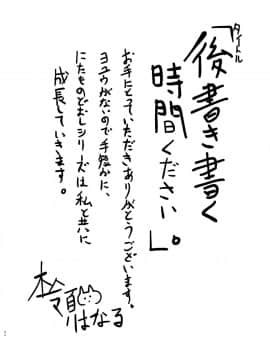 タイトル
「後書き書く
時間ください」。
お手にとっていただきありがとうございます。
ヨユウがないので手短かに、
にたものどおしシリーズは私と共に
成長していきます。
はなる